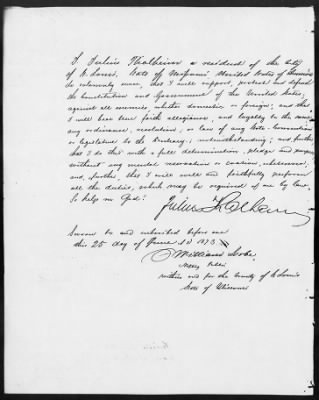 I Julius Kalheim a resident of the City
of St. Louis, State of Missouri United States of America
do solemnly swear, that I will support, protect and defend
the Constitution and Government of the United States,
against all enemies, whether domestic or foreign; and that
I will bear true faith, allegiance, and loyalty to the same,
any ordinance, resolution, or law of any State Convention
or legislature to the Contrary, notwithstanding; and further
that I do this with a full determination, pledge and purpose
without any mental reservation or evasion, whatsoever,
and, further, that I will well and faithfully perform
all the duties, which may be required of me by law.
So help me God!
Julius
Sworn to and subscribed before me
this 25 day of June A D 1873
William
Notary Public
within and for the County of St Louis
State of Missouri